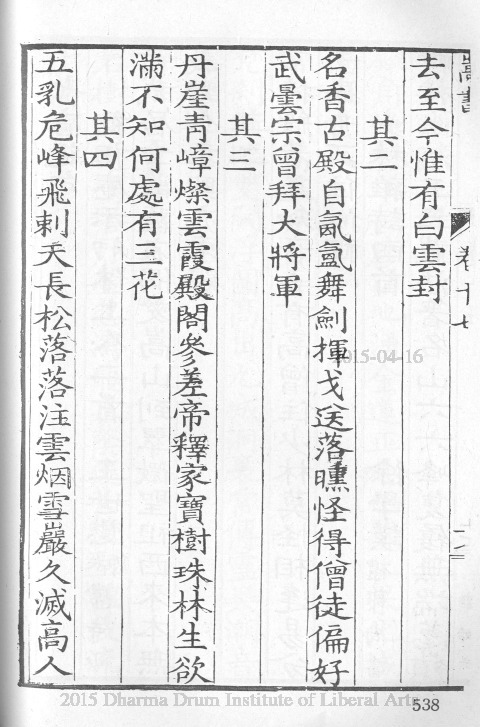 嵩書
卷十七
去至今惟有白雲封
其二
名香古殿自氤氳舞劍揮戈送落曛怪得僧徒偏好
武曇宗曾拜大將軍
其三
丹崖青嶂燦雲霞殿閣參差帝釋家寶樹珠林生欲
滿不知何處有三花
其四
五乳危峰飛刺天長松落落注雲烟雪巖久滅高人
2015-04-16
2015 Dharma Drum Institute of Liberal Arts
538